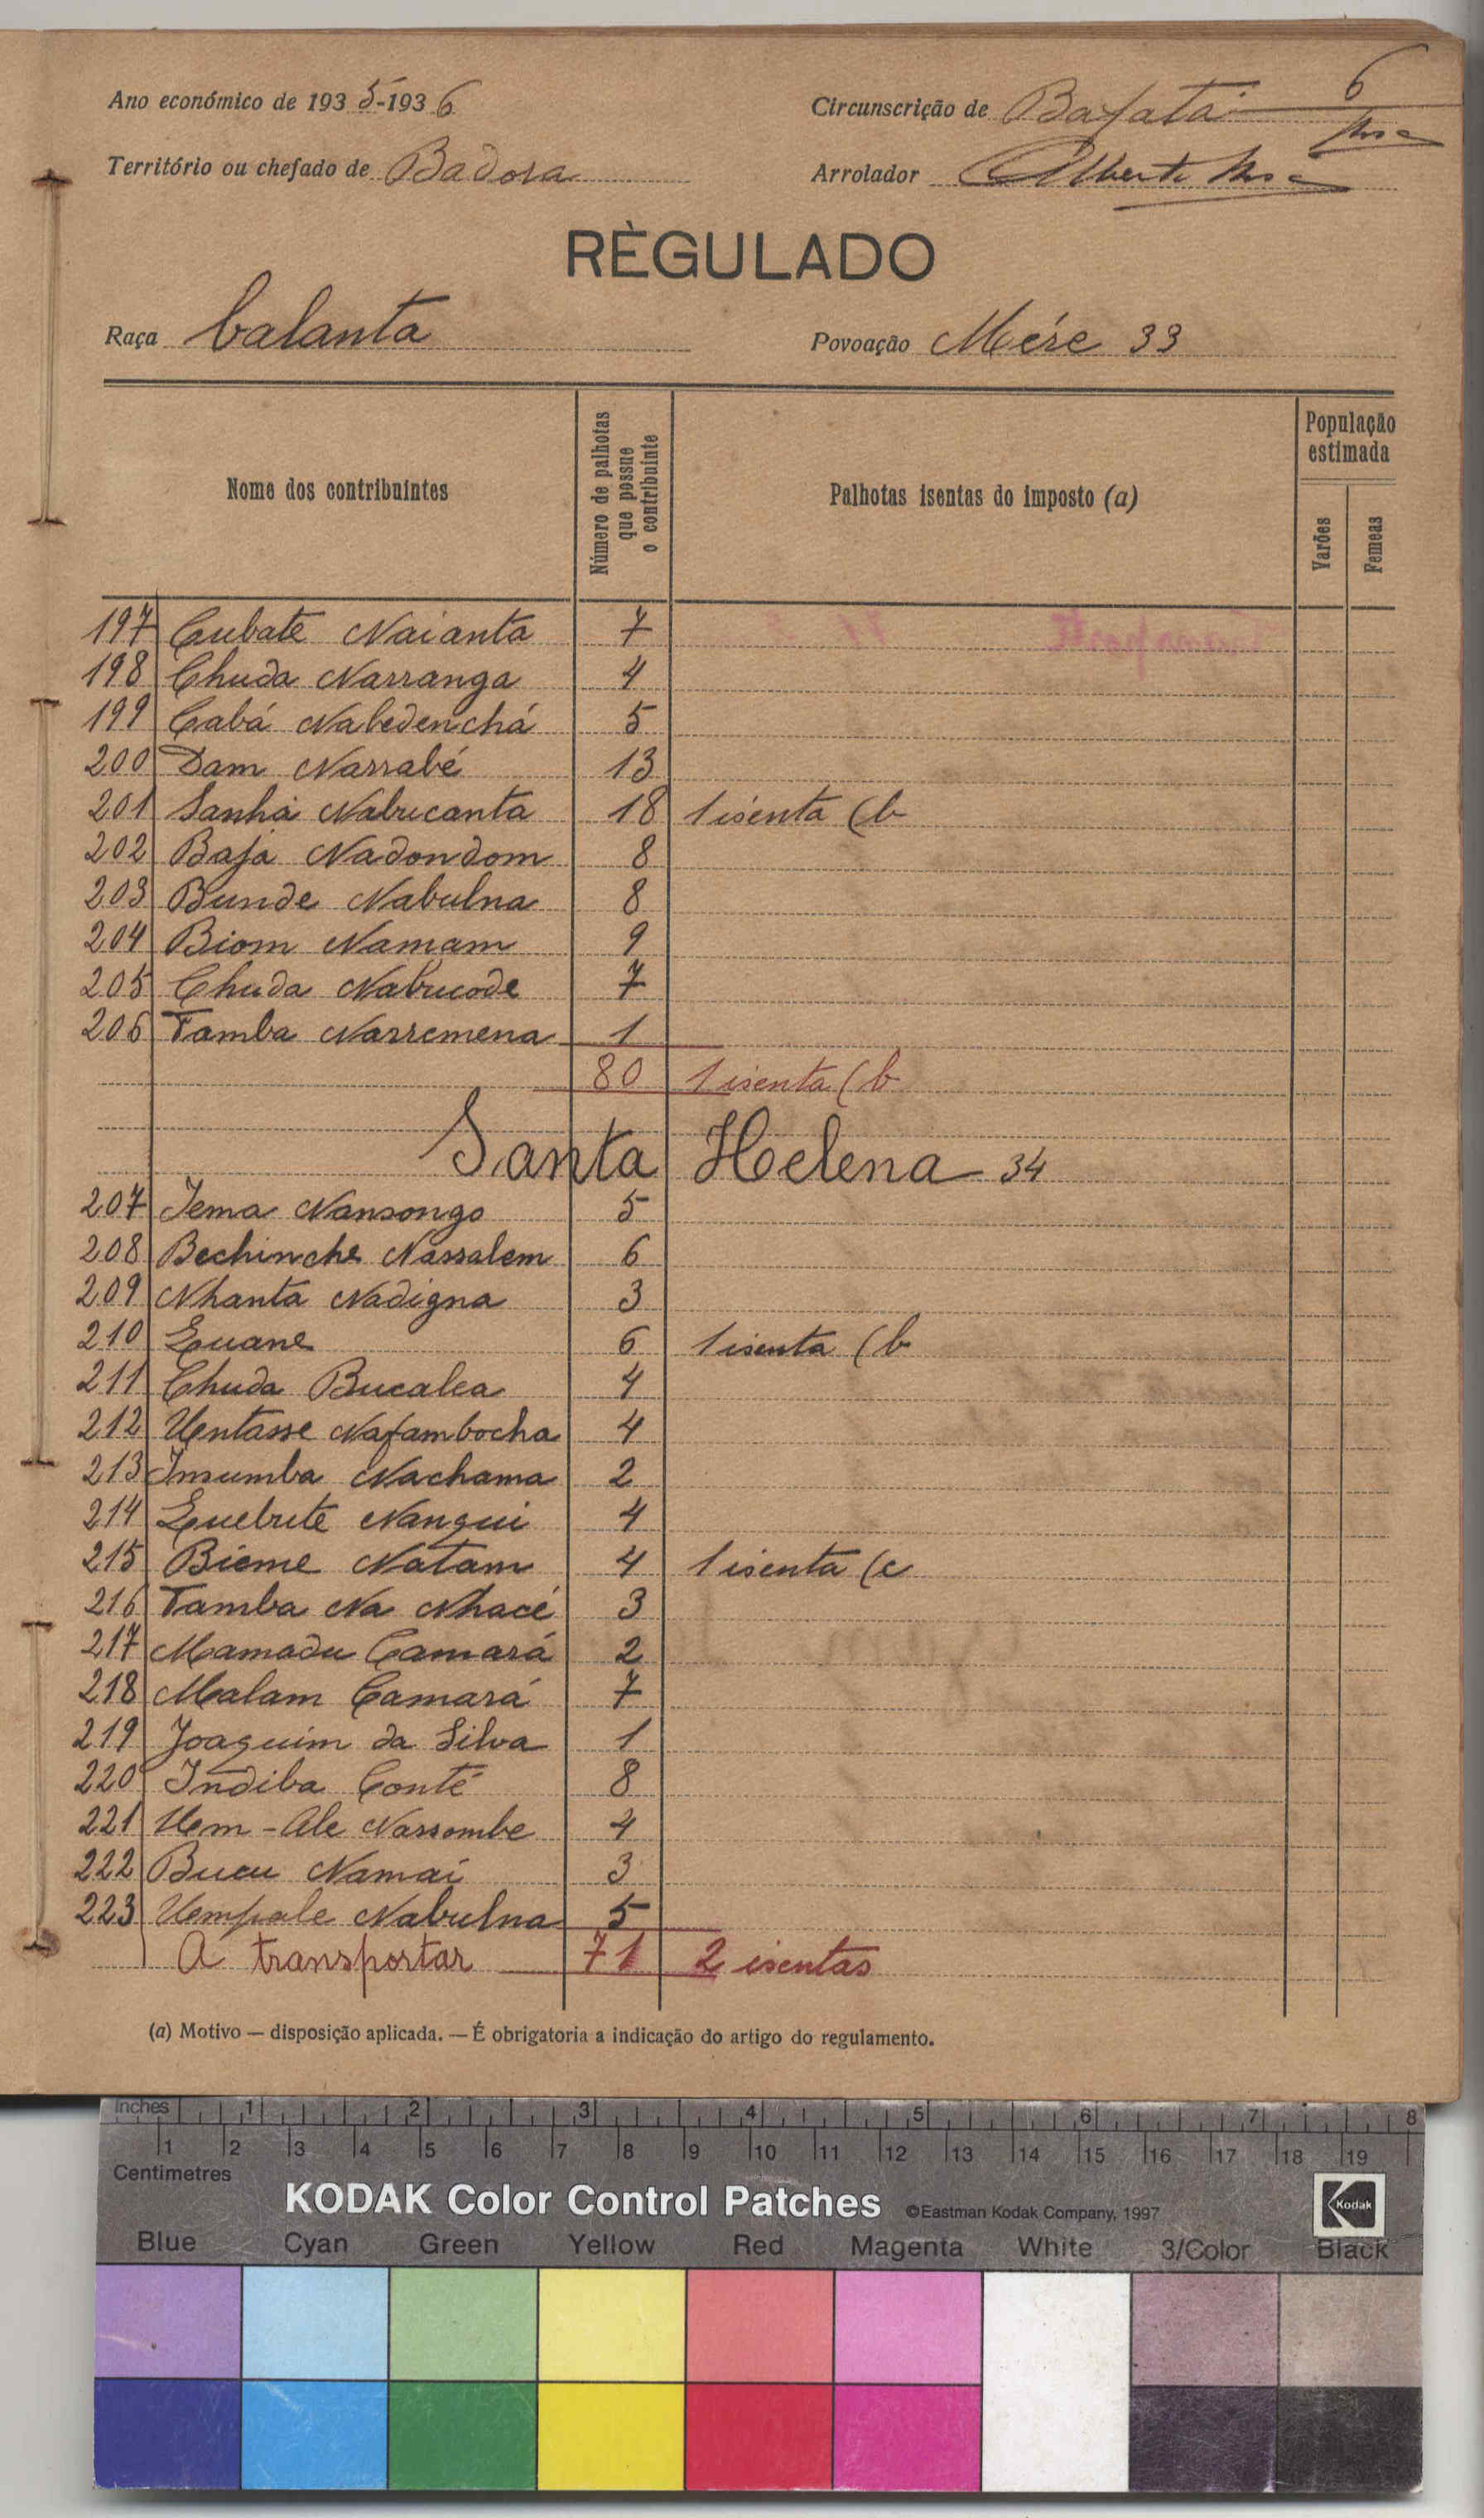 6
Ano económico de 1935-1936
Circunscrição de Bafatá
Território ou chefado de Badora
Arrolador Alberto
RÈGULADO
Raça balanta
Povoação Mére 33
Nome dos contribuintes
Número de palhotas que possue o contribuinte
Palhotas isentas do imposto (a)
População estimada
Varões
Femeas
197 Cubate Naianta 7
198 Chuda Narranga 4
199 Cabá Nabedenchá 5
200 Dam Narrabé 13
201 Sanhá Nabucanta 18 1 isenta (b
202 Bajá Nadondom 8
203 Bunde Nabulna 8
204 Biom Namam 9
205 Chuda Nabucode 7
206 Tamba Narremena 1
80 1 isenta (b
Santa Helena 34
207 Jema Nansongo 5
208 Bechinche Nassalem 6
209 Nhanta Nadigna 3
210 Luane 6 1 isenta (b
211 Chuda Bucalea 4
212 Uentasse Nafambocha 4
213 Insumba Nachama 2
214 Quebute Nangui 4
215 Bieme Natam 4 1 isenta (c
216 Tamba Na Nhacé 3
217 Mamadu Camará 2
218 Malam Camará 7
219 Joaquim da Silva 1
220 Indiba Conté 8
221 Uem-Ale Nassombe 4
222 Bucu Namai 3
223 Uempale Nabulna 5
A transportar 71 2 isentas
(a) Motivo — disposição aplicada. — É obrigatoria a indicação do artigo do regulamento.
Inches 1 2 3 4 5 6 7 8
1 2 3 4 5 6 7 8 9 10 11 12 13 14 15 16 17 18 19
Centimetres
KODAK Color Control Patches ©Eastman Kodak Company, 1997 Kodak
Blue Cyan Green Yellow Red Magenta White 3/Color Black